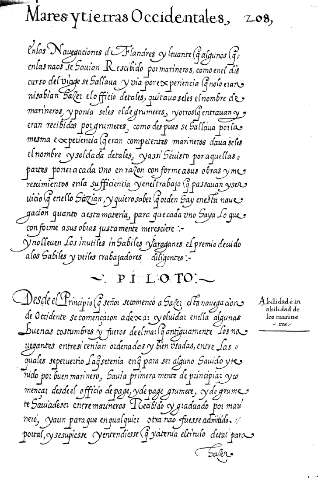 Mares y tierras Occidentales, 208,
en las Navegaciones de Flandres y levante (q algunos (q
en las naos se havian Rescibido por marineros, como en el dis
curso del viage se hallava y via por experiencia (q no lo eran
ni sabian hazer el officio de tales, quitava seles el nombre de
marineros, y ponia seles el de grumetes, y otros (q entravan y
eran recibidos por grumetes, como despues se hallava por la
mesma experiencia (q eran competentes marineros dava seles
el nombre y soldada de tales, y assi havisto por aquellas
partes poner a cada uno en razon con forme a sus obras y me
recimientos en la sufficientia y en el trabajo (q passavan y ser
vicio (q en ello hazian, y quiero saber (q orden hay en esta nave
gacion quanto a esta materia, para que cada uno haya lo que
con forme a sus obras justamente meresciere :-
y no lleven los inutiles in habiles y haraganes el premio devido
a los habiles y utiles trabajadores diligentes :-
PILOTO :-
Desde el Principio (q señor se comenco a hazer esta navegacion
de Occidente se començaron a dexar y olvidar en ella algunas
buenas costumbres y fueros de el mar (q antiguamente los na
vegantes entre si tenian ordenadas y bien usadas, entre las
quales se
tenia en (q para ser alguno havido y te
nido por buen marinero, havia primeramente de principiar y co
mencar desde el officio de page, y de page grumete, y de grume
te havia de ser entre marineros Recibido y graduado por mari
nero, y aun para que en qualquier otra nao fuesse admitido
por tal, y se supiesse y entendiesse (q ya tenia el titulo de tal para
hazer
Abilidad e in
abilidad de
los marine
ros